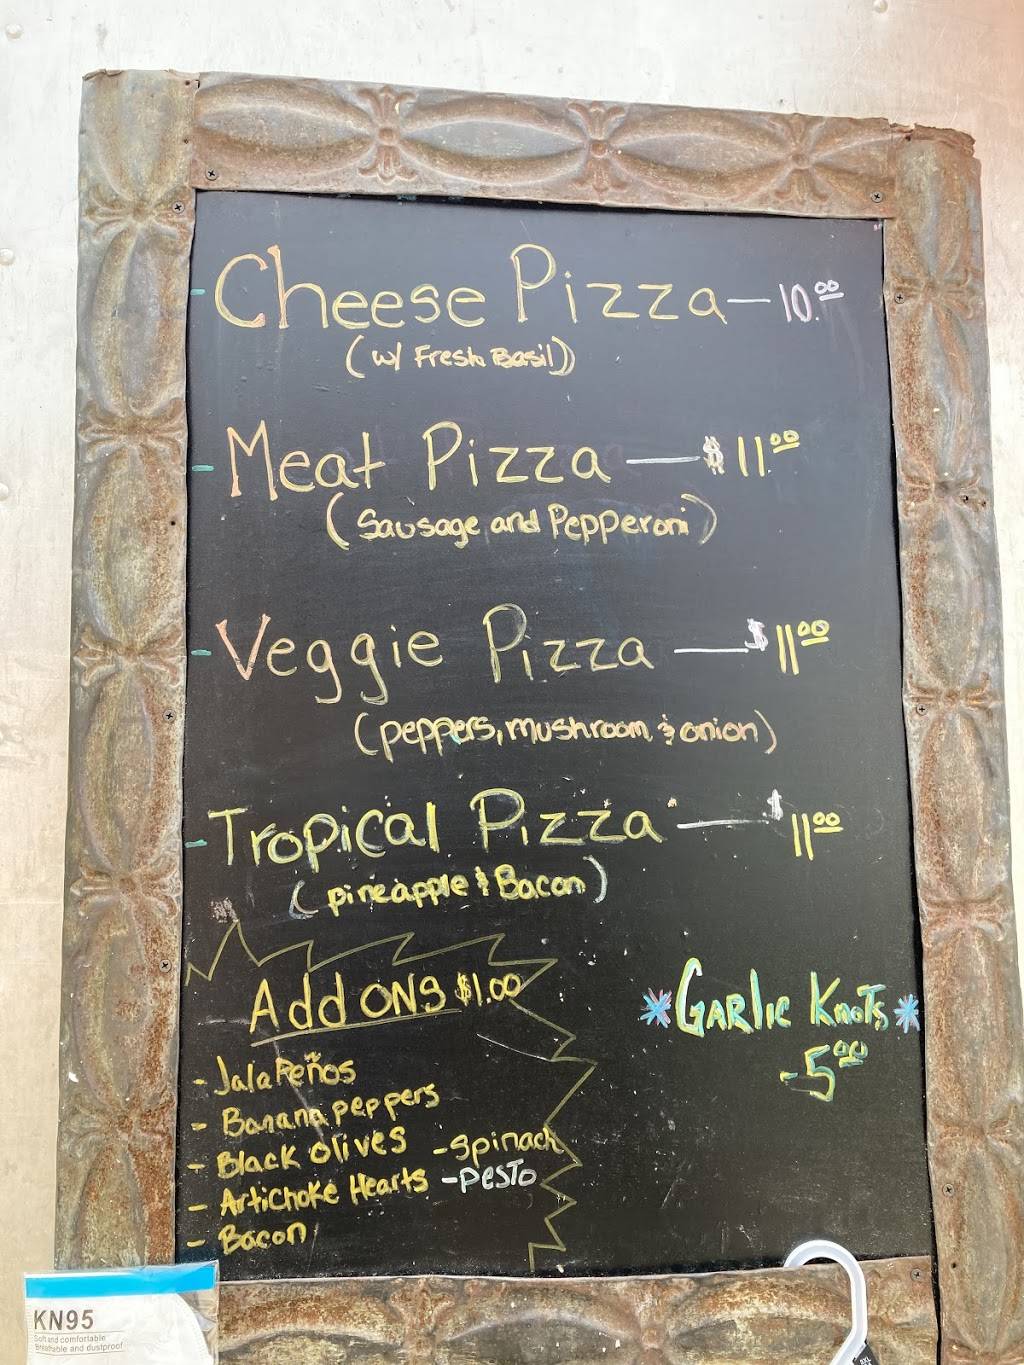 - Cheese Pizza — 10.00
(w/ Fresh Basil)
- Meat Pizza — $11.00
(Sausage and Pepperoni)
- Veggie Pizza — $11.00
(peppers, mushroom, & onion)
- Tropical Pizza — $11.00
(pineapple & Bacon)
Add ONs $1.00
- JalaPeños
- Banana peppers
- Black Olives
- Spinach
- Artichoke Hearts
- Pesto
- Bacon
* GARlic KnoTs *
- 5.00
KN95
Soft and comfortable
Breathable and dustproof